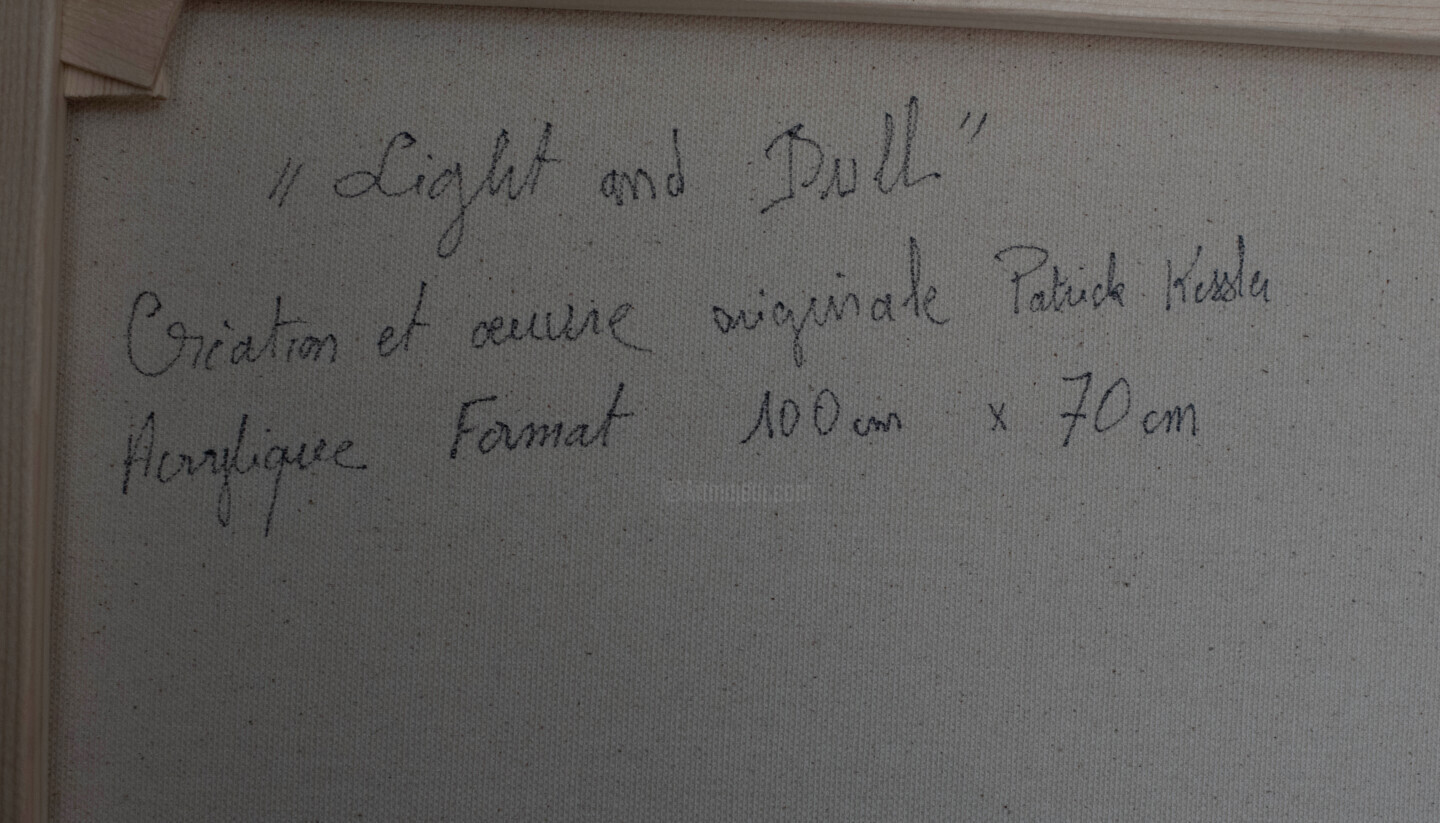 " Light and Dull "
Création et œuvre originale Patrick Kessler
Acrylique Format 100 cm x 70 cm
©Artmajeur.com